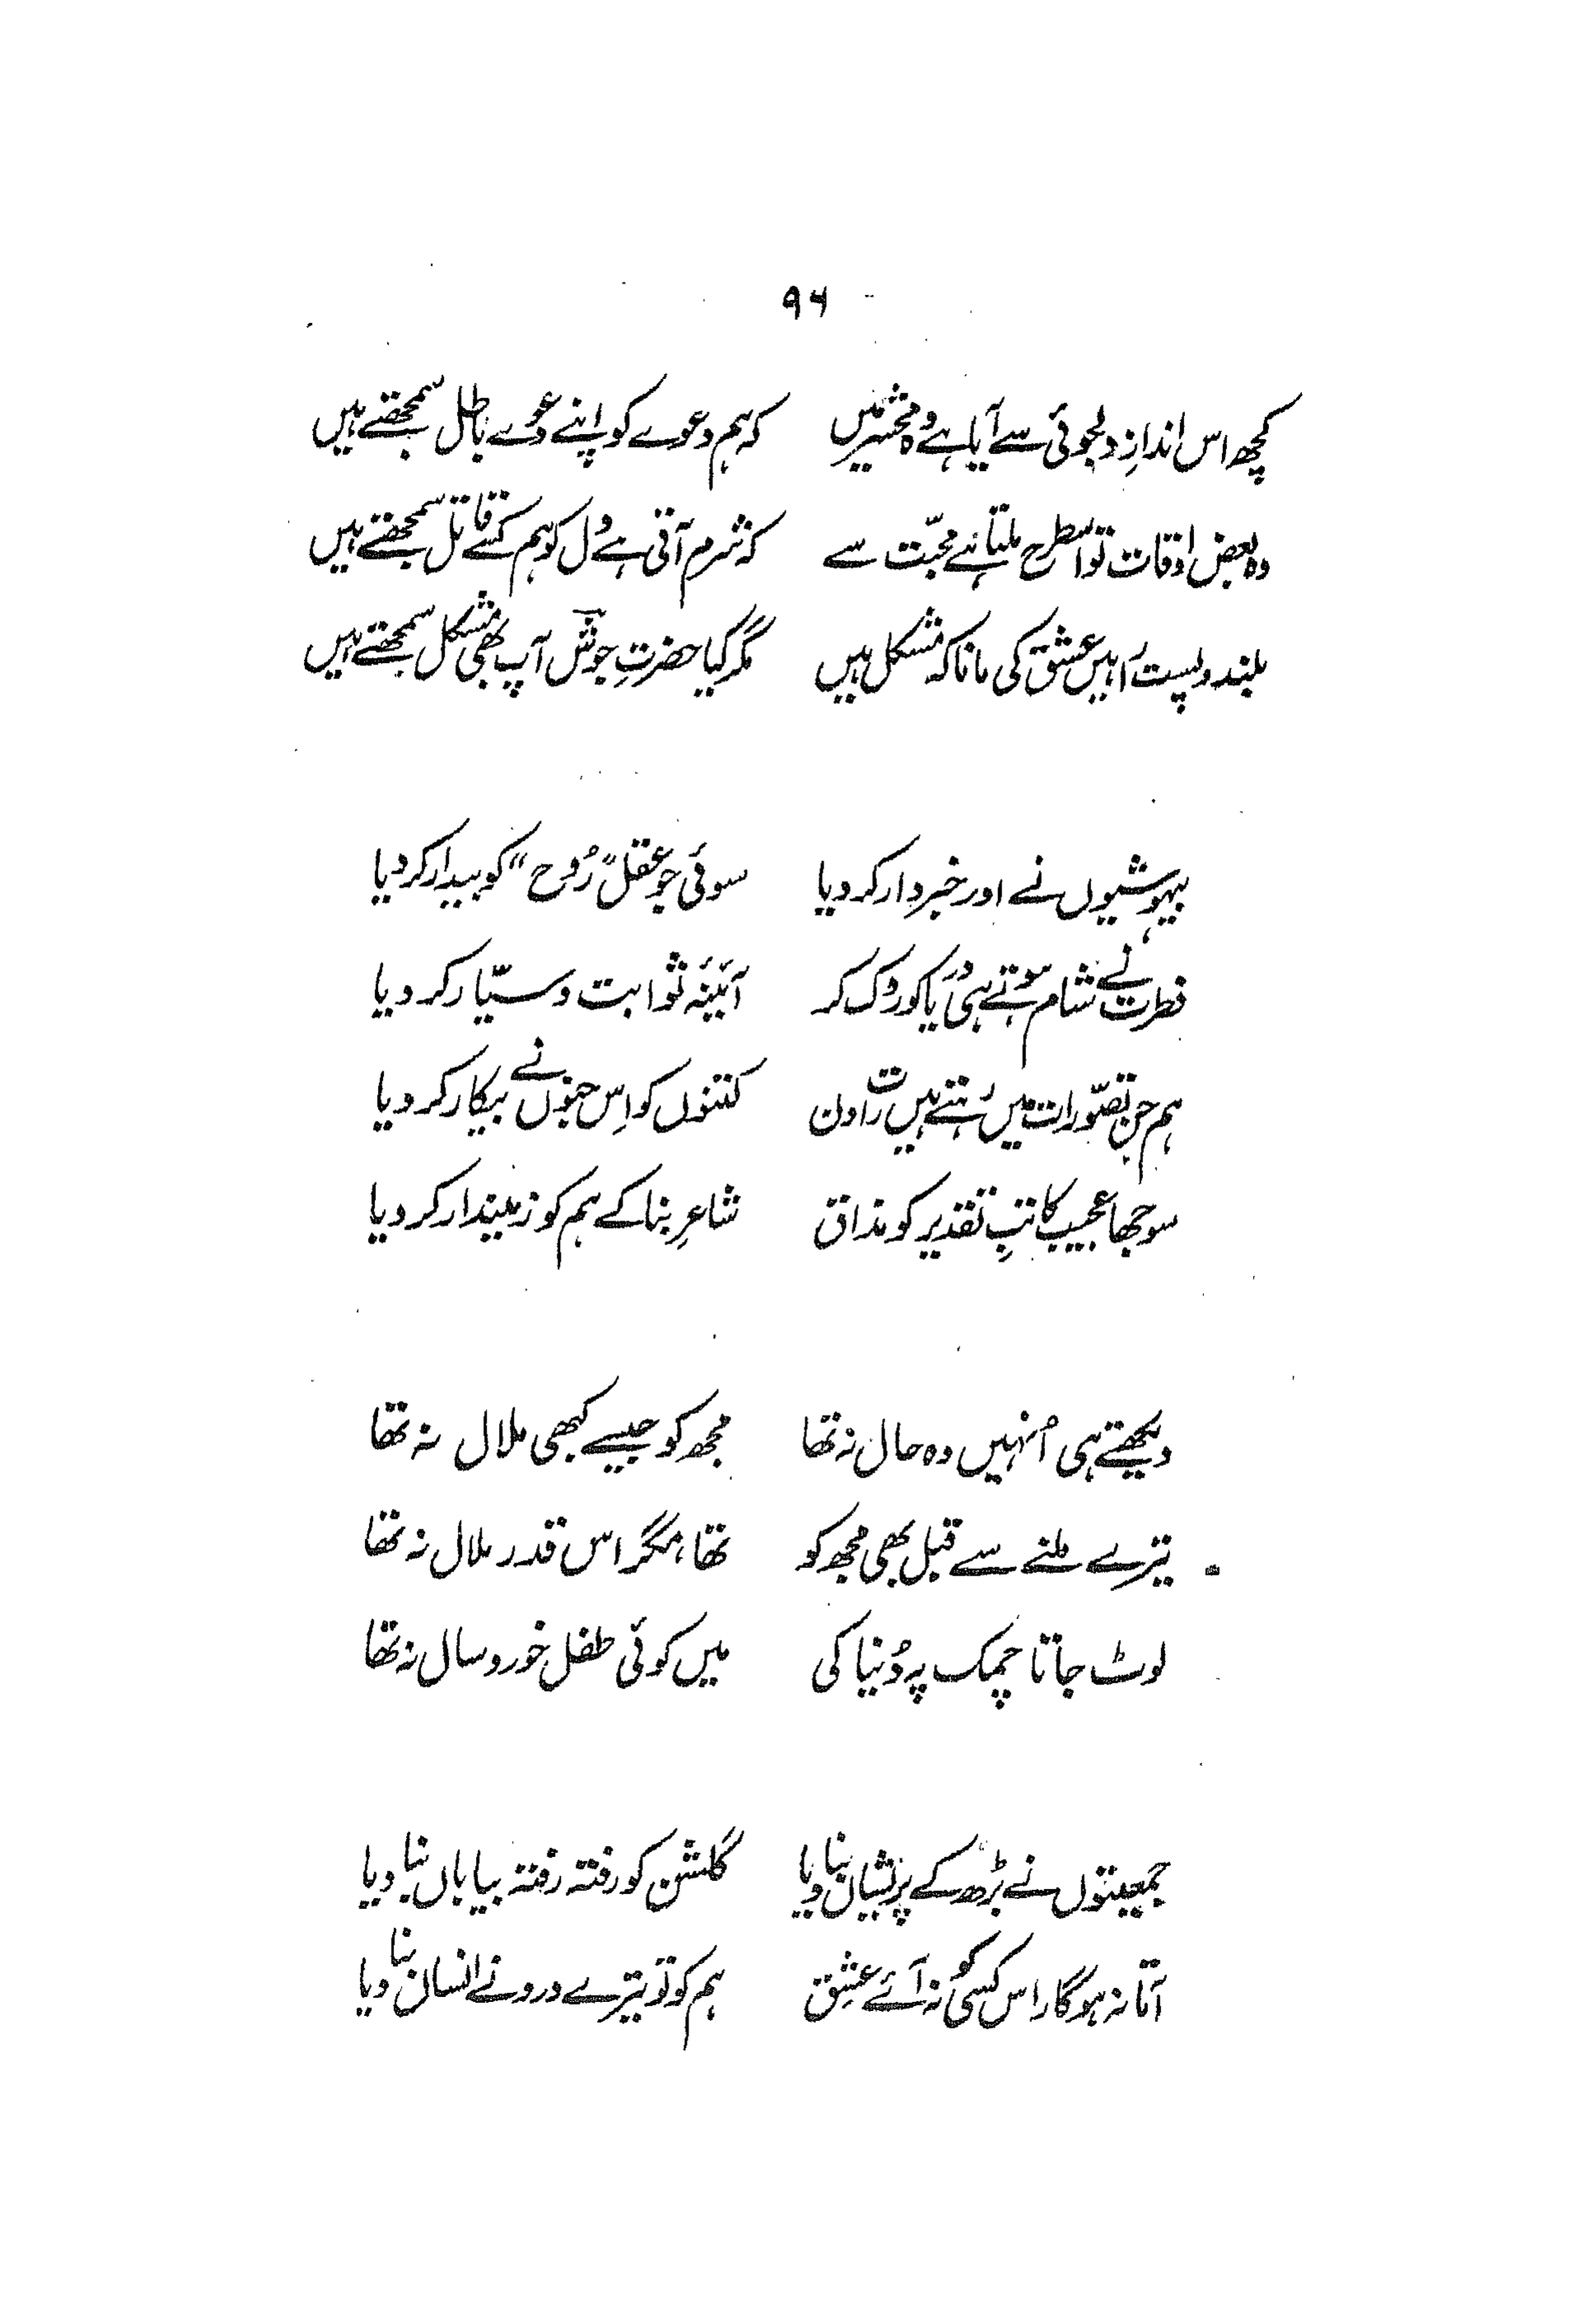 ۹۶
کچھ اس اندازِ دلجوئی سے آیا ہے وہ محشر میں کہ ہم دعوے کو اپنے دعوے باطل سمجھتے ہیں
وہ بعض اوقات تو اسطرح ملتا ہے محبّت سے کہ شرم آتی ہے دل کو ہم کسے قاتل سمجھتے ہیں
بلند و پست راہیں عشق کی مانا کہ مشکل ہیں مگر کیا حضرتِ جوشؔ آپ بھی مشکل سمجھتے ہیں
بیہوشیوں نے اور خبردار کر دیا سوئی جو عقل "رُوح" کو بیدار کر دیا
فطرت نے شام ہوتے ہی دریا کو روک کر آئینۂ ثوابت و سیّار کر دیا
ہم جن تصّورات میں رہتے ہیں رات دن کتنوں کو اِس جنوں نے بیکار کر دیا
سوجھا عجیب کاتبِ تقدیر کو مذاق شاعر بنا کے ہم کو زمیندار کر دیا
دیکھتے ہی اُنہیں وہ حال نہ تھا مجھ کو جیسے کبھی ملال نہ تھا
تیرے ملنے سے قبل بھی مجھ کو تھا، مگر اس قدر ملال نہ تھا
لوٹ جاتا چمک پہ دُنیا کی میں کوئی طفل خورد سال نہ تھا
جمعیتوں نے بڑھ کے پریشاں بنا دیا گلشن کو رفتہ رفتہ بیاباں بنا دیا
آتا نہ ہوگا راس کسی کو نہ آئے عشق ہم کو تو تیرے درد نے انساں بنا دیا